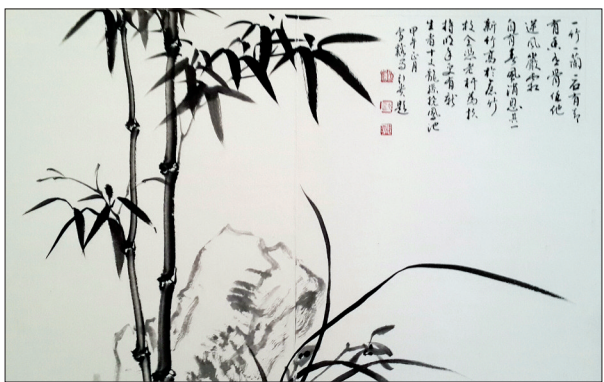 一竹一蘭一石有节
有香有骨任他
逆風嚴霜
自有春風消息其一
新竹高於舊竹
枝全憑老幹為扶
持明年更有新
生者十丈龍孫繞鳳池
甲午正月
寫 題